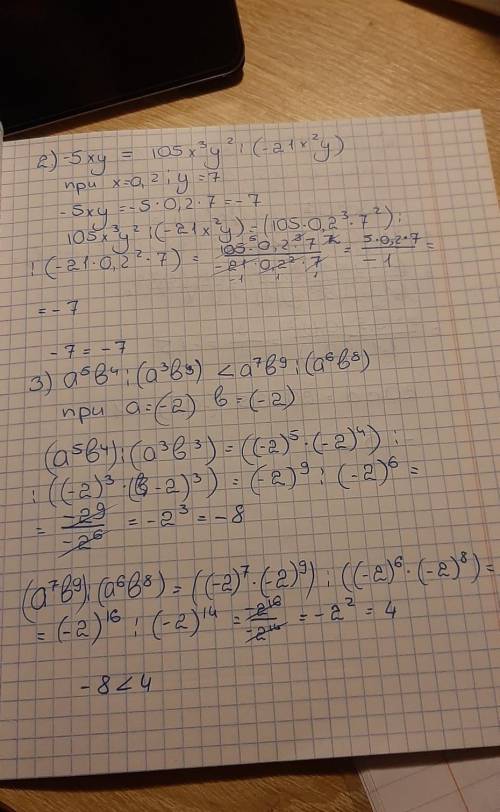 2) -5xy = 105x³y² : (-21x²y)
при x=0,2; y=7
-5xy = -5·0,2·7 = -7
105x³y² : (-21x²y) = (105·0,2³·7²) :
: (-21·0,2²·7) = 105·0,2³·7²/-21·0,2²·7 = 5·0,2·7/-1 =
= -7
-7 = -7
3) a⁵b⁴ : (a³b³) < a⁷b⁹ : (a⁶b⁸)
при a=(-2) b=(-2)
(a⁵b⁴) : (a³b³) = ((-2)⁵·(-2)⁴) :
: ((-2)³·(-2)³) = (-2)⁹ : (-2)⁶ =
= -2⁹/-2⁶ = -2³ = -8
(a⁷b⁹) : (a⁶b⁸) = ((-2)⁷·(-2)⁹) : ((-2)⁶·(-2)⁸) =
= (-2)¹⁶ : (-2)¹⁴ = -2¹⁶/-2¹⁴ = -2² = 4
-8 < 4